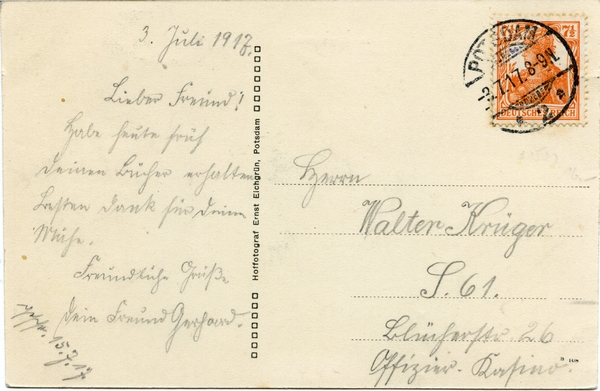 3. Juli 1917.
Lieber Freund!
Habe heute früh
deinen Bücher erhalten
Besten dank für deine
Mühe.
Freundliche Grüße
dein Freund Gerhard.
15.7.17
Hoffotograf Ernst Eichgrün, Potsdam
POTSDAM
-2.7.17. 8-9N.
7½
DEUTSCHES REICH
Herrn
Walter Krüger
S. 61.
Blücherstr. 26
Offizier-Kasino.